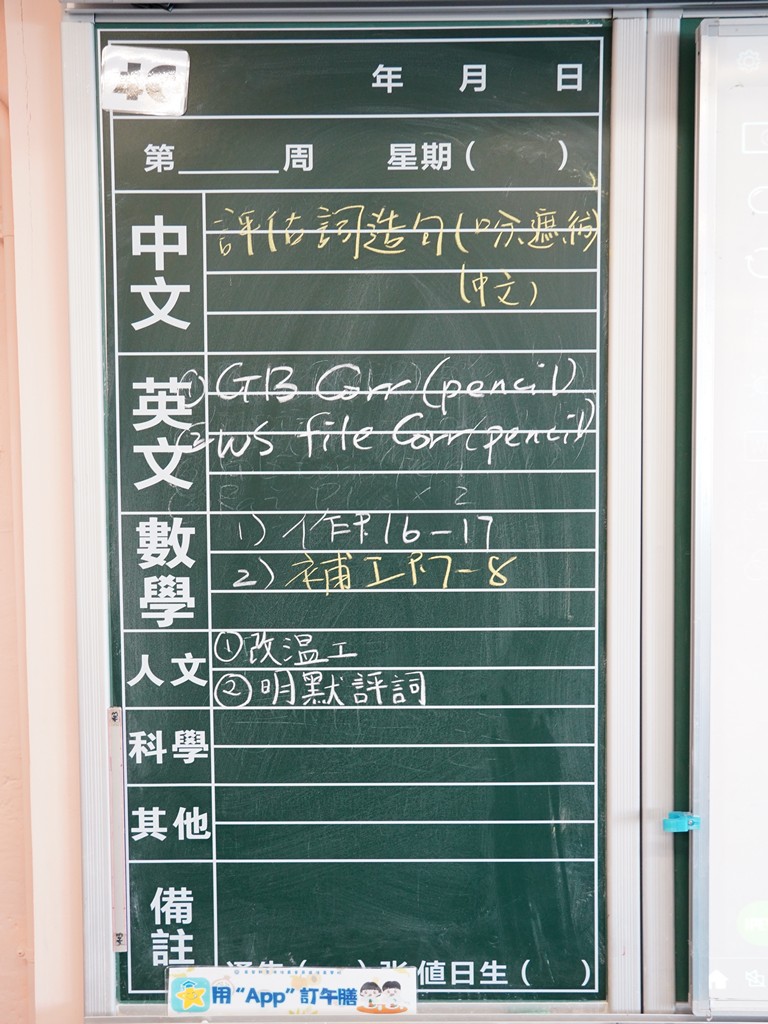 4C
年 月 日
第______周 星期( )
中文
評估詞造句(吩遮衛)
(中文)
英文
① GB Corr (pencil)
② WS file Corr (pencil)
數學
1) 作P.16-17
2) 補工P.7-8
人文
①改温工
②明默評詞
科學
其他
備註
值日生( )
用“App”訂午膳